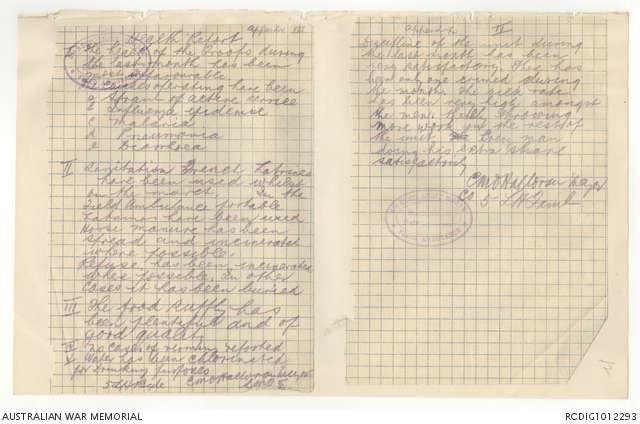 Appendix VIII
Health Report
I. The health of the troops during
the last month has been
most unfavourable.
The causes operating have been
a Strain of active service
b Influenza epidemic
c Malaria
d Pneumonia
e Diarrhoea
II Sanitation Trench Latrines
have been used whilst
on the march. In the
Field Ambulance portable
have been used
Horse manure has been
spread and incinerated
where possible.
Refuse has been incinerated
when possible, in other
cases it has been buried
III The food supply has
been plentiful and of
good quality
IV no cases of reported
V Water has been chlorinated
for drinking purposes
Appendix
IX
Discipline of the unit during
the last month has been
very satisfactory. There has
been only one crimed during
the month. The sick rate
has been very high amongst
the men thereby throwing
more work on the rest of
the unit. Each man
doing his extra share
satisfactorily
Major
CO 5 L H F Amb
AUSTRALIAN WAR MEMORIAL
RCDIG1012293